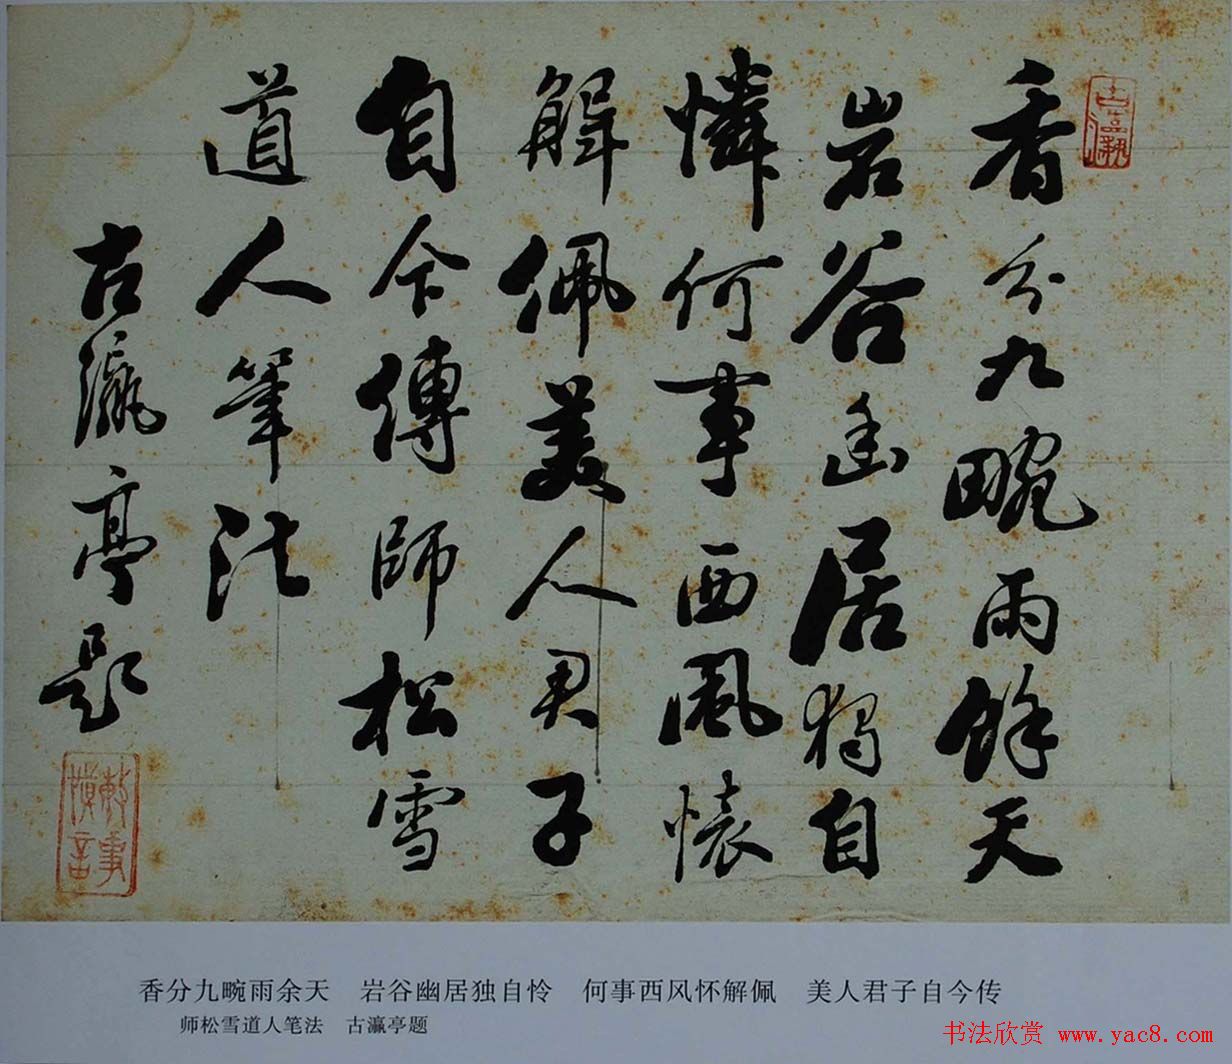 香分九畹雨餘天
岩谷幽居獨自
憐何事西風懷
解佩美人君子
自今傳師松雪
道人筆法
古瀛亭題
敏事
慎言
香分九畹雨余天　岩谷幽居独自怜　何事西风怀解佩　美人君子自今传
师松雪道人笔法　古瀛亭题
书法欣赏 www.yac8.com